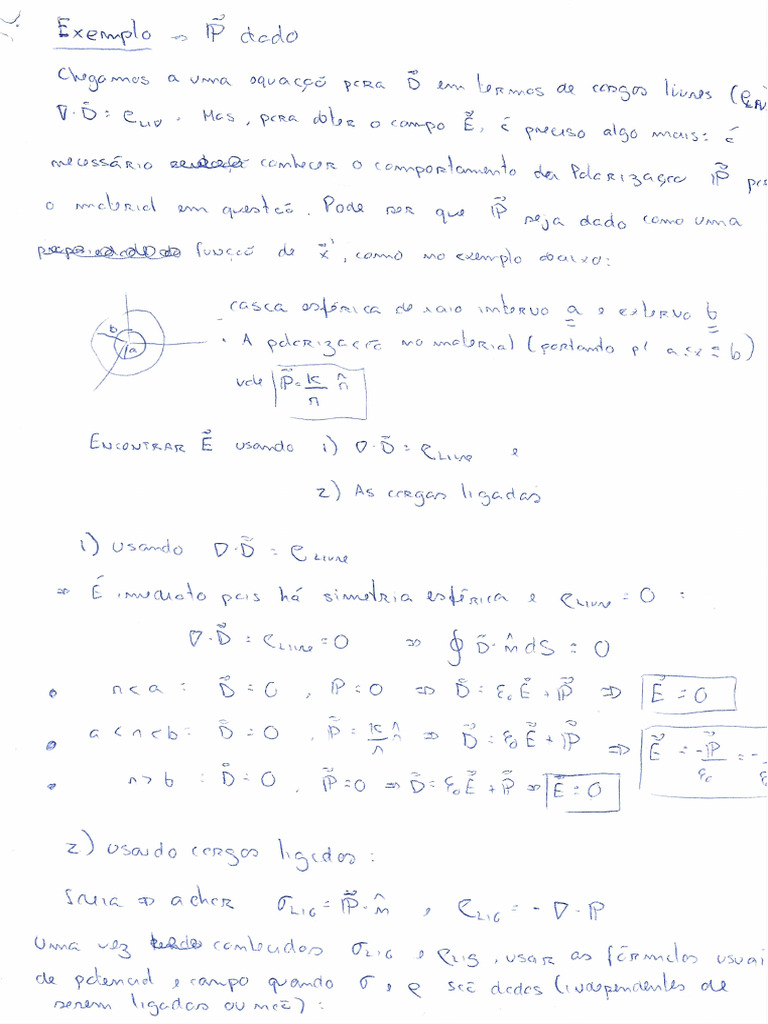 Exemplo → P⃗ dado
Chegamos a uma equação para D⃗ em termos de cargas livres (ρ
∇·D⃗ = ρLIV. Mas, para obter o campo E⃗, é preciso algo mais: é
necessário conhecer o comportamento da Polarização P⃗ p
o material em questão. Pode ser que P⃗ seja dado como uma
função de x⃗', como no exemplo abaixo:
casca esférica de raio interno a e externo b
b
a
· A polarização no material (portanto p/ a≤r≤b)
vale P⃗ = k/r r̂
ENCONTRAR E⃗ usando 1) ∇·D⃗ = ρLIVRE e
2) As cargas ligadas
1) usando ∇·D⃗ = ρLIVRE
⇒ É imediato pois há simetria esférica e ρLIVRE = 0 :
∇·D⃗ = ρLIVRE = 0 ⇒ ∮ D⃗·n̂ dS = 0
• r < a : D⃗ = 0 , P = 0 ⇒ D⃗ = ε₀E⃗ + P⃗ ⇒ E⃗ = 0
• a < r < b : D⃗ = 0 , P⃗ = k/r r̂ ⇒ D⃗ = ε₀E⃗ + P⃗ ⇒ E⃗ = -P⃗/ε₀ = -
• r > b : D⃗ = 0, P⃗ = 0 ⇒ D⃗ = ε₀E⃗ + P⃗ ⇒ E⃗ = 0
2) usando cargas ligadas :
Seria ⇒ achar σLIG = P⃗·n̂ , ρLIG = -∇·P
Uma vez conhecidos σLIG e ρLIG, usar as fórmulas usuai
de potencial e campo quando σ, ρ são dados (independentes de
serem ligadas ou não) :